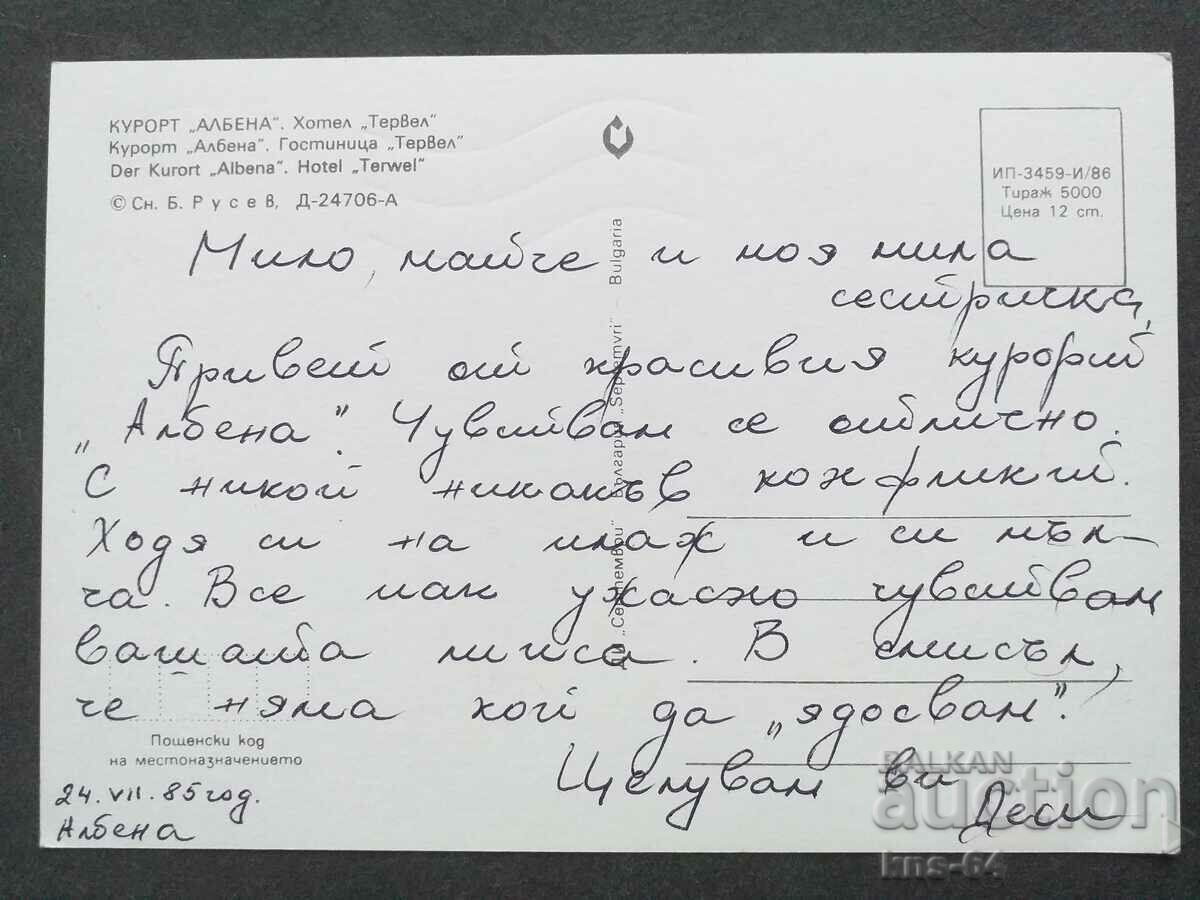 КУРОРТ „АЛБЕНА". Хотел „Тервел"
Курорт „Албена". Гостиница „Тервел"
Der Kurort „Albena". Hotel „Terwel"
© Сн. Б. Русев, Д-24706-А
ИП-3459-И/86
Тираж 5000
Цена 12 ст.
ДП „Септември" България „Septemvri" – Bulgaria
Мило, майче и моя мила
сестричка,
Привет от красивия курорт
„Албена". Чувствам се отлично.
С никой никакъв конфликт.
Ходя си на плаж и си мъл-
ча. Все пак ужасно чувствам
вашата липса. В смисъл,
че няма кой да „ядосвам".
Целувам ви
Деси
Пощенски код
на местоназначението
24.VII.85 год.
Албена
BALKAN
auction
kns-64